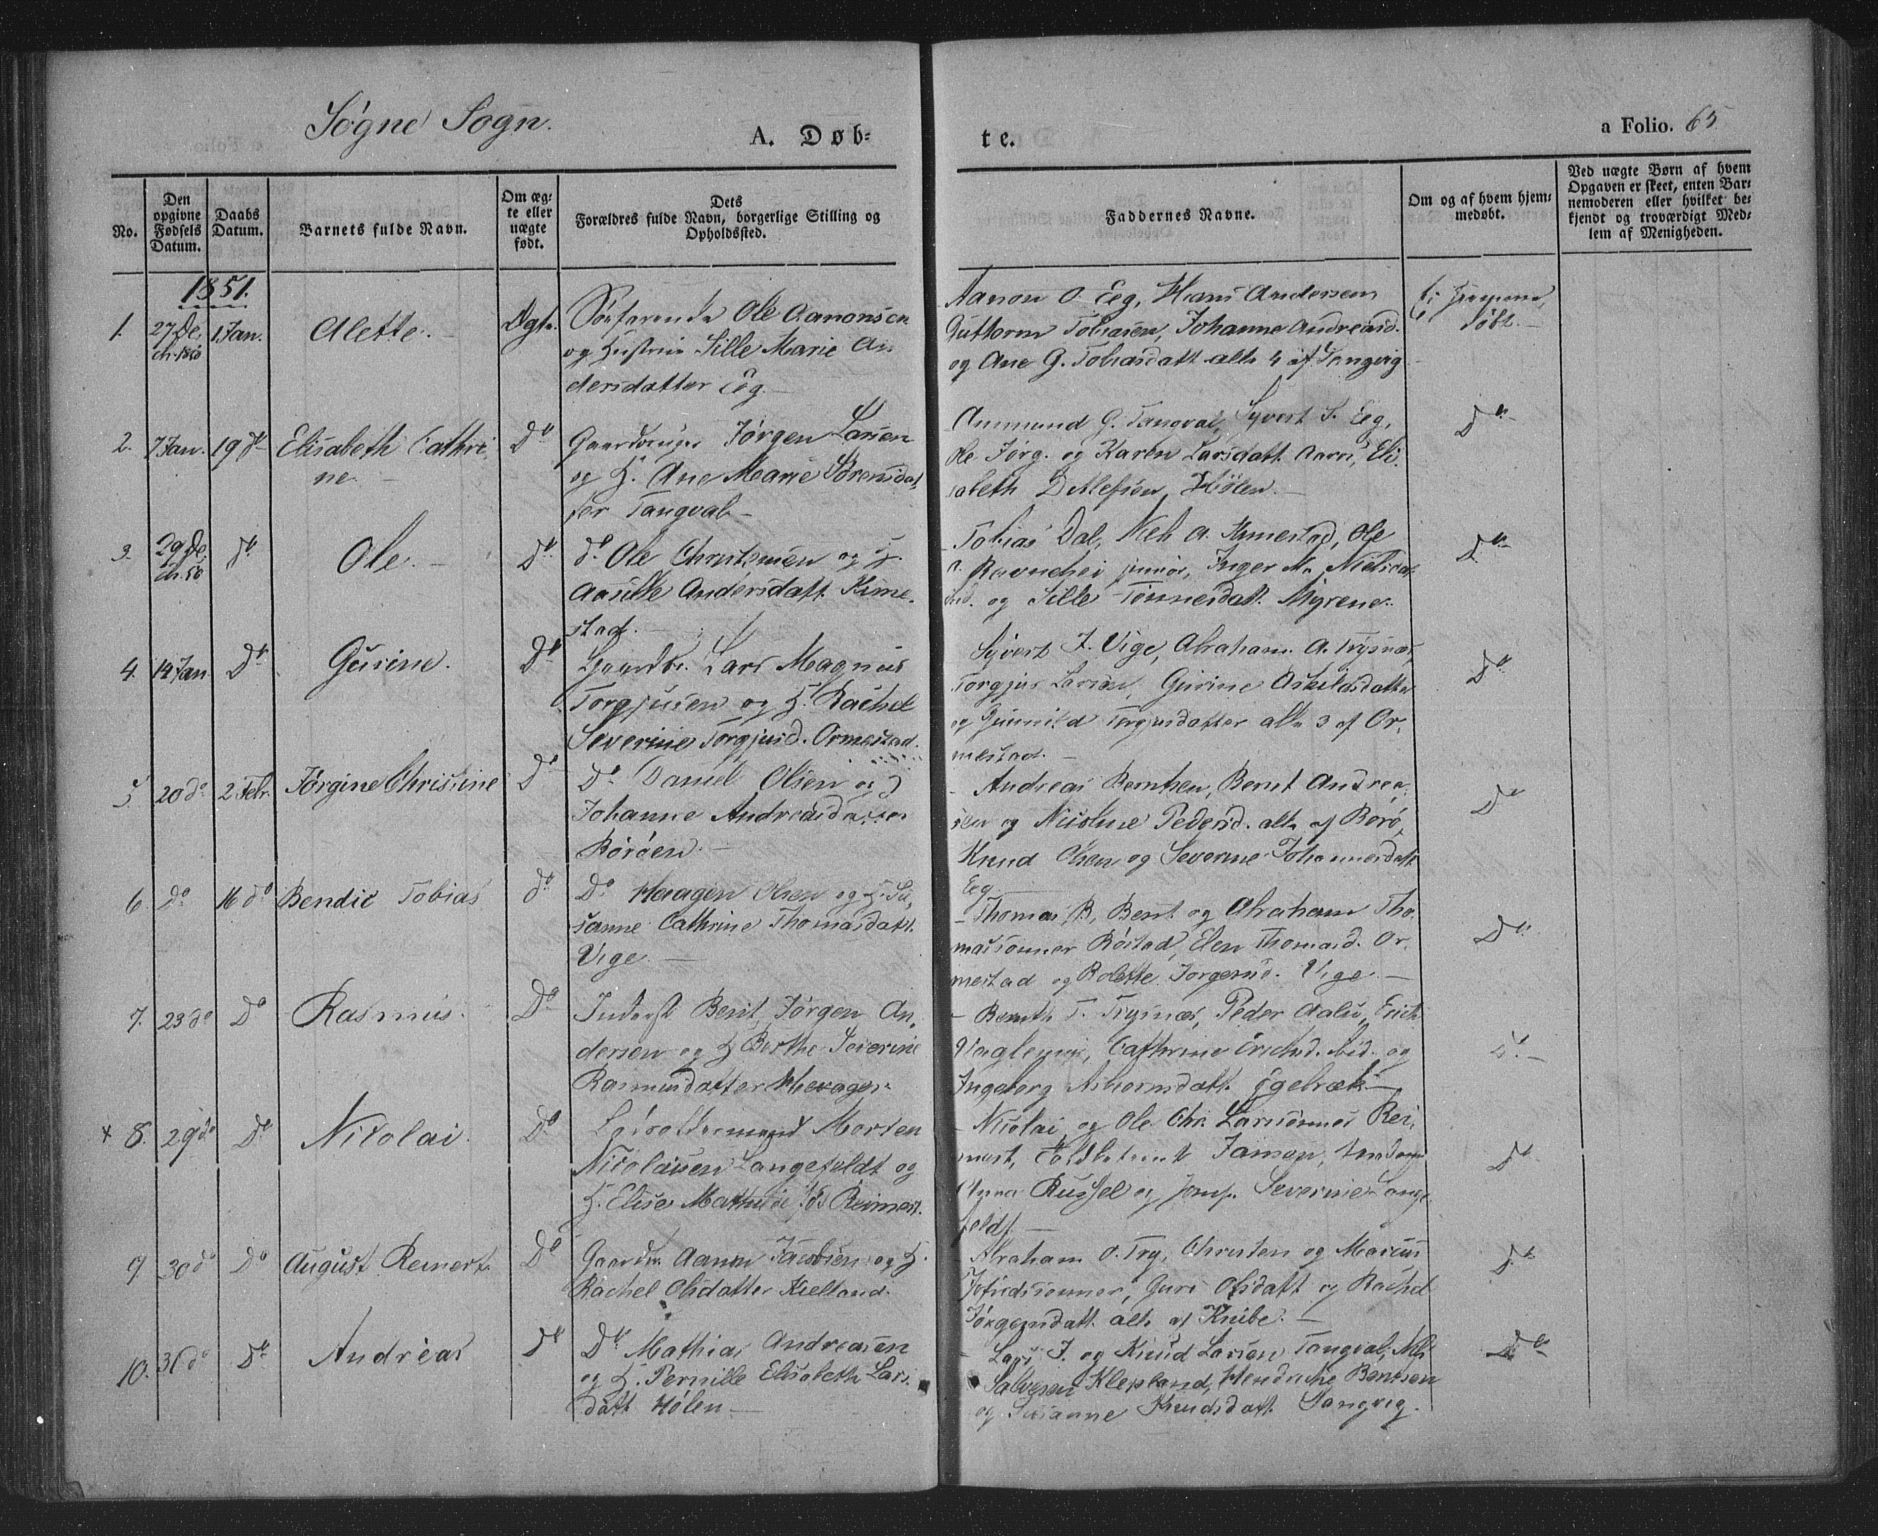 Søgne Sogn.
A. Døb-
te.
a Folio. 65
No.
Den
opgivne
Fødsels
Datum.
Daabs
Datum.
Barnets fulde Navn.
Om æg-
te eller
uægte
født.
Dets
Forældres fulde Navn, borgerlige Stilling og
Opholdssted.
Faddernes Navne.
Om og af hvem hjem-
medøbt.
Ved uægte Børn af hvem
Opgaven er skeet, enten Bar-
nemoderen eller hvilket be-
kjendt og troværdigt Med-
lem af Menigheden.
1851.
1. 27 De
1 Jan. Alette. Ægte
Søefarende Ole Aanonsen
og Hustrue Sille Marie An
dersdatter Eeg.
Aanon O. Eeg, Hans Andersen
Guttorm Tobiasen, Johanne Andreasd.
og Ane G. Tobiasdatt. alle 4 af Tangvig
døbt.
2. 7 Jan. 19 do Elisabeth Cathri
ne. Do
Gaardbruger Jørgen Larsen
og H. Ane Marie Sørensdat
ter Tangval
Ammund G. Tangval, Syvert S. Eeg,
Ole Jørg. og Karen Larsdatt. Aaros, Eli
sabeth Detlefsen Hølen.
Do
3. 29 De
ch. 50 do Ole. Do
do Ole Christensen og H.
Andersdatt. Kime
stad.
Tobias Dal, Niels A. Kimestad, Ole
junior, Inger M. Nielsdat
og Sille Tønnesdatt. Myrene.
Do
4. 14 Jan Do Gurine. Do
Gaardbr. Lars Magnus
Torgjusen og H. Rachel
Severine Torgjusd. Ormestad.
Syvert J. Vige, Abraham A. Trysnæs,
Torgjus Larsen, Gurine Askildsdatter
og Gunnild Torgjusdatter alle 3 af Or
mestad.
Do
5 20 do 2 Febr. Jørgine Christine Do
Do Daniel Olsen og H
Johanne Andreasdatter
Borøen.
Andreas Berntsen, Bernt Andrea
sen og Nicoline Pedersd. alle af Borø,
Knud Olsen og Severine Johannesdatt
Eeg.
Do
6. Do 16 do Bendic Tobias do
Do Haagen Olsen og H. Su
sanne Cathrine Thomasdatt.
Vige.
Thomas B, Bent og Abraham Tho
massønner Røstad, Elen Thomasd. Or
mestad og Bolette Jørgensd. Vige.
Do
7. 23 do Do Rasmus. Do
Inderst Bent Jørgen An
dersen og H Berthe Severine
Rasmusdatter
Bernth T. Trysnæs, Peder Erich
Cathrine Erichsd. ibid. og
Ingeborg Asbiornsdatt. Egebræk
do
x 8. 29 do Do Nicolai. Do
Morten
Nicolaisen Langefeldt og
H. Elise Mathilde Reimert.
Nicolai og Ole Chr. Larssønner Rei
mert, Toldbetjent Jansen,
Russel og Jomf. Severine Lange
feldt
Do
9 30 do Do August Reinert. Do
Gaardbr. Aanon Jacobsen og H.
Rachel Olsdatter Kielland.
Abraham O. Try, Christen og Marcus
Guri Olsdatt og Rachel
Jørgensdatt alle af Knibe.
Do
10. 31 do Do Andreas Do
Do Mathias Andreasen
og H. Pernille Elisabeth Lars
datt Hølen
Lars J. og Knud Larsen Tangval, Nils
Salvesen Klepland, Hendriche Bentsen
og Susanne Knudsdatt. Langvig.
Do